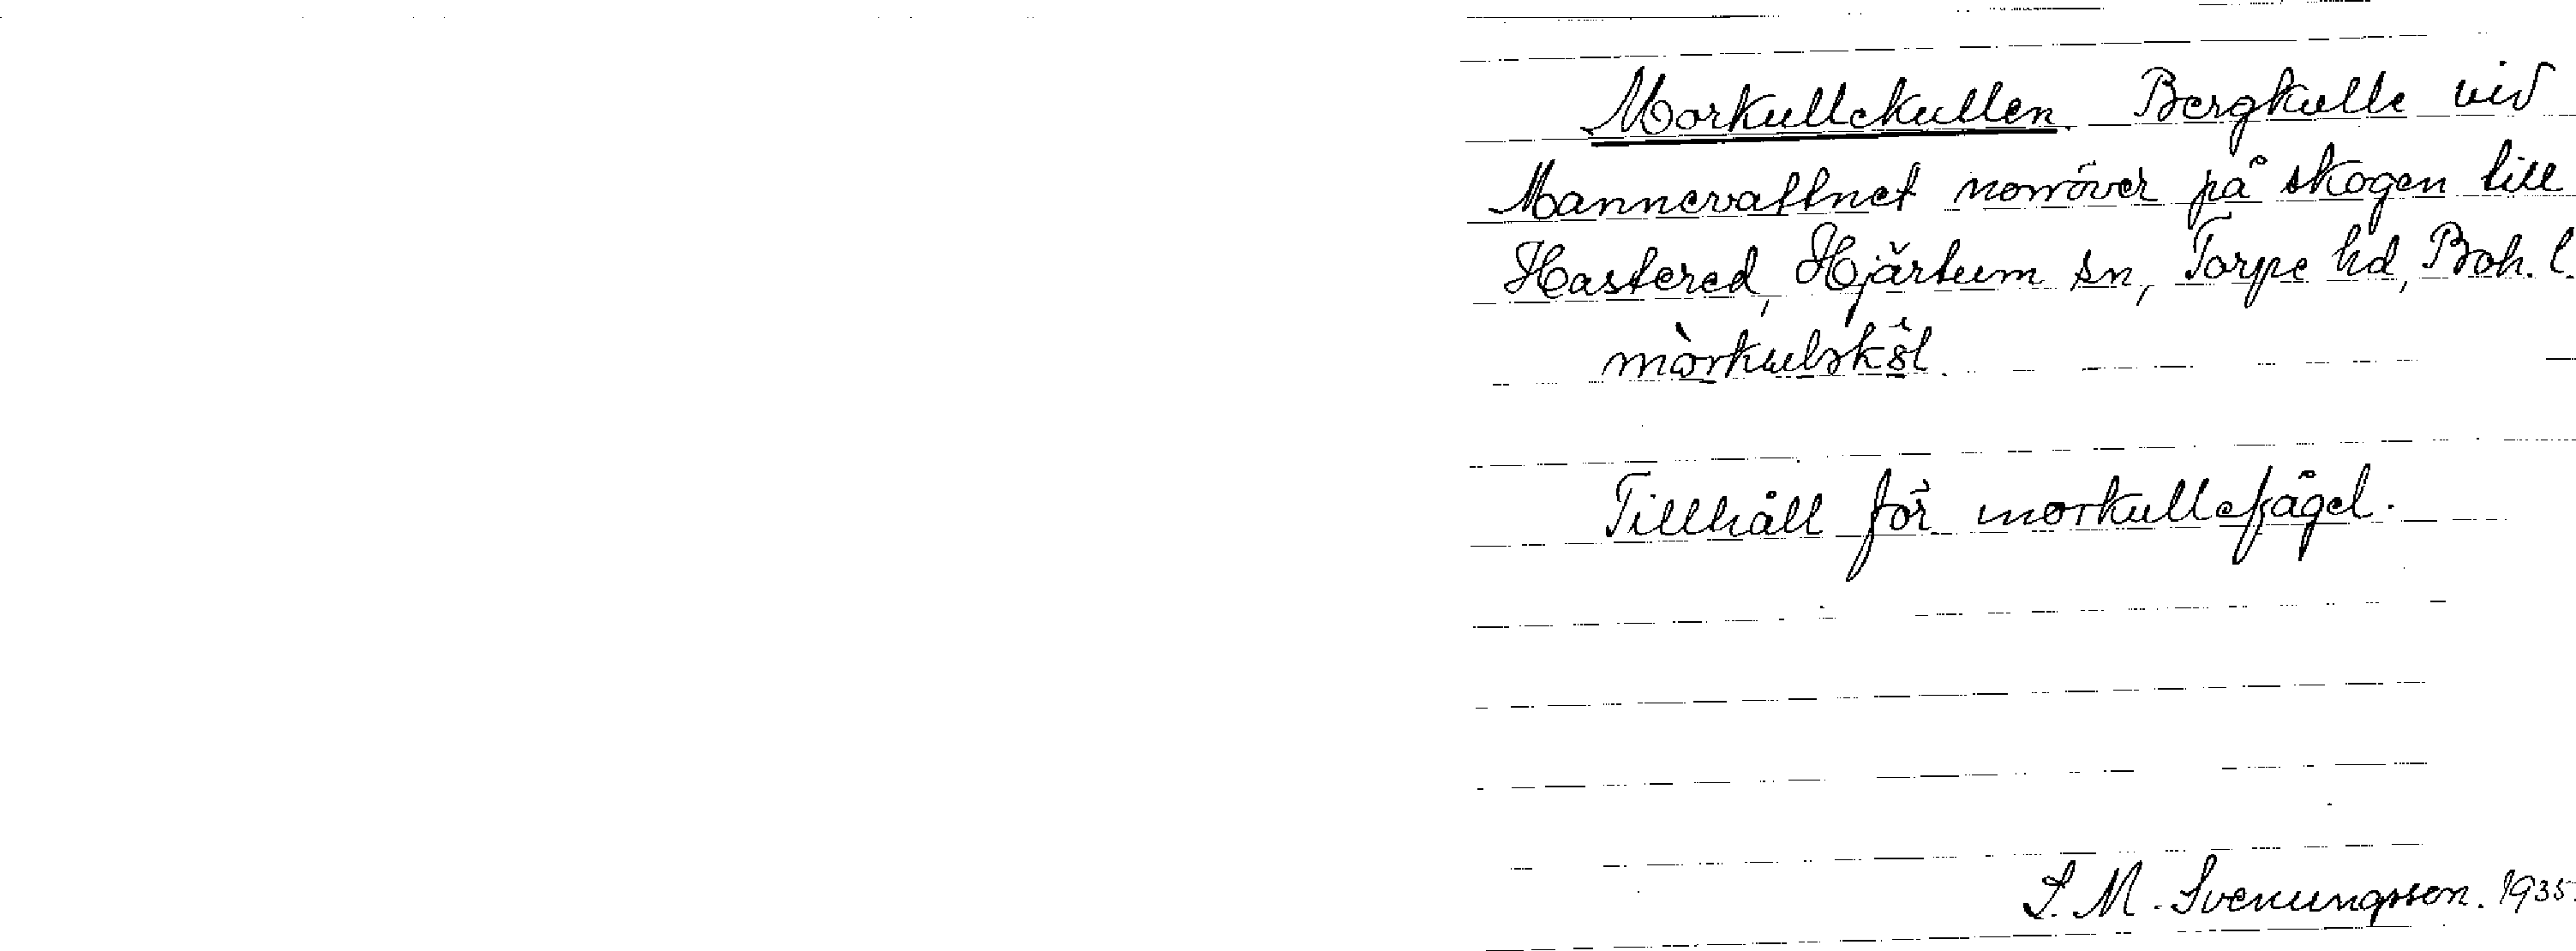 Morkullekullen. Bergkulle vid
Mannevattnet norröver på skogen till
Hastered, Hjärtum sn, Torpe hd, Boh. l.
Tillhåll för morkullefågel.
S. M. Svenungsson. 1935.